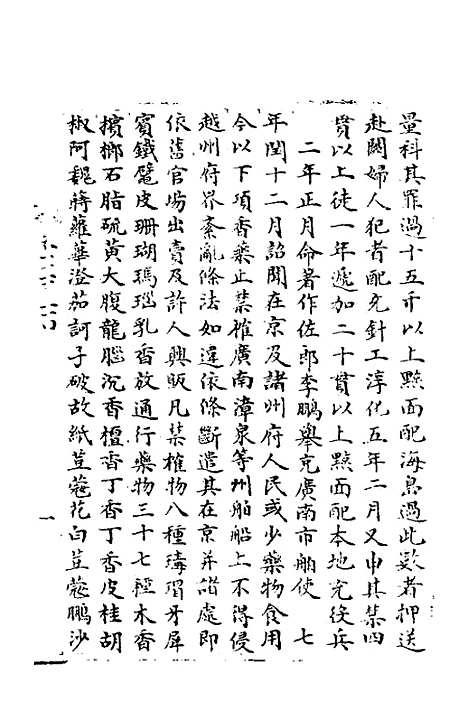 量科其罪過十五斤以上黥面配海島過此數者押送
赴闕婦人犯者配充針工淳化五年二月又申其禁四
貫以上徒一年遞加二十貫以上黥面配本地充役兵
二年正月命著作佐郎李鵬舉充廣南市舶使 七
年閏十二月詔聞在京及諸州府人民或少藥物食用
今以下項香藥止禁榷廣南漳泉等州舶船上不得侵
越州府界紊亂條法如違依條斷遣其在京并諸處即
依舊官場出賣及許人興販凡禁榷物八種瑇瑁牙犀
賓鐵鼊皮珊瑚瑪瑙乳香放通行藥物三十七種木香
檳榔石脂硫黃大腹龍腦沉香檀香丁香丁香皮桂胡
椒阿魏蒔蘿蓽澄茄訶子破故紙荳蔻花白荳蔻鵬沙
一